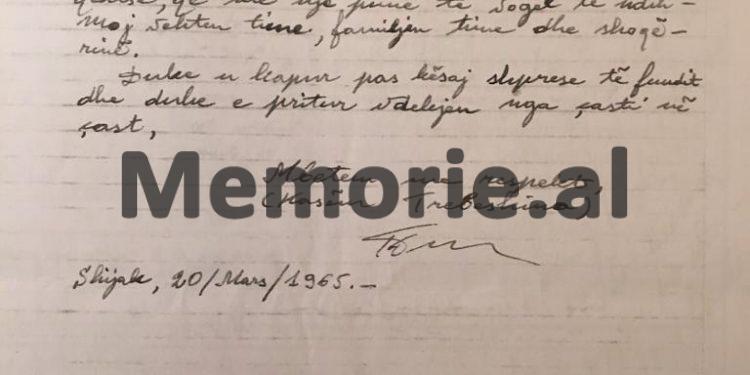 që një punë të vogël të ndih-
moj vehten time, familjen time dhe shoqë-
rinë.
Duke u kapur pas kësaj shprese të fundit
dhe duke e pritur vdekjen nga çasti në
çast,
Mbetem me respekt,
(Kasëm Trebeshina)
Memorie.al
Shijak, 20/Mars/1965.-